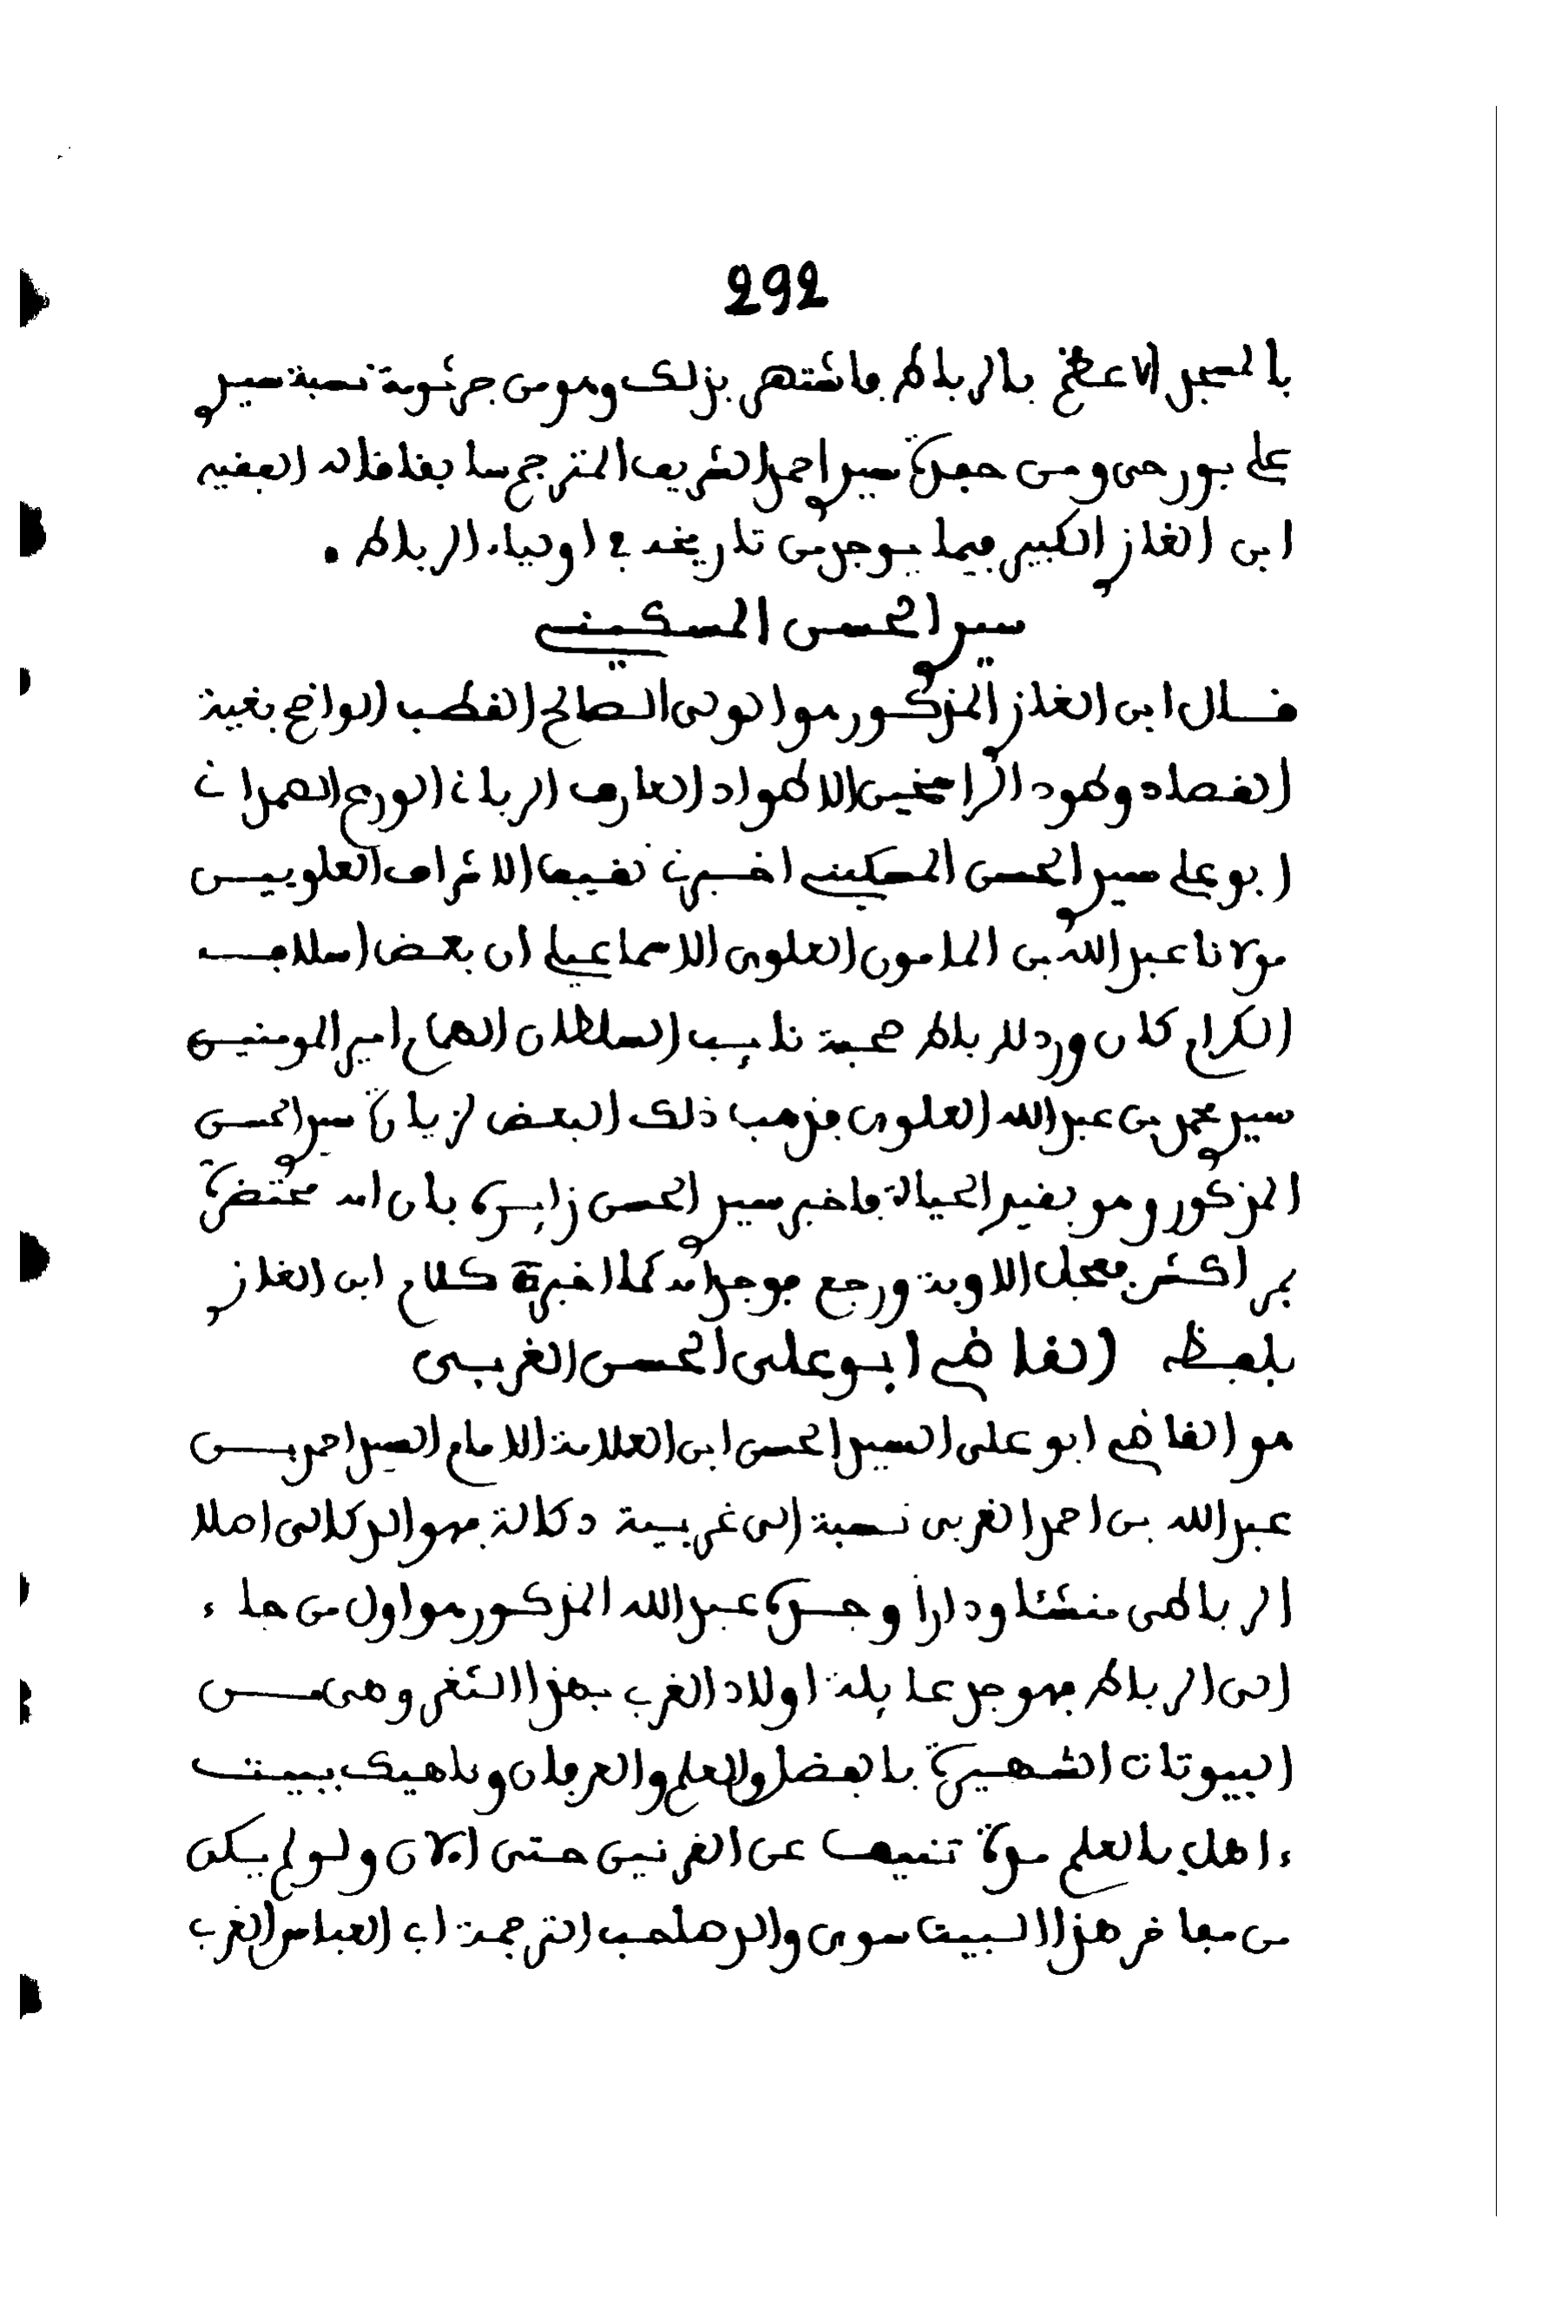 292
بالمسجد الاعظم بالرباط فاشتهر بذلك وهو من جرثومة نسبة سيدي
علي بورحى ومن حفدة سيدي احمد الشريف المترجم سابقا قاله الفقيه
ابن الغازي الكبير فيما يوجد من تاريخه في اولياء الرباط .
سيدي الحسن المسكيني
قال ابن الغازي المذكور هو الولي الصالح القطب الواضح بغية
القصاد وطود الراسخين الاطواد العارف الرباني الورع الصمداني
ابو علي سيدي الحسن المسكيني اخبرني نقيب الاشراف العلويين
مولانا عبد الله بن المامون العلوي الاسماعيلي ان بعض اسلافه
الكرام كان ورد للرباط صحبة نايب السلطان الهمام امير المومنين
سيدي محمد بن عبد الله العلوي فذهب ذلك البعض لزيارة سيدي الحسن
المذكور وهو بقيد الحياة فاخبر سيدي الحسن زايره بان امه محتضرة
بمراكش فعجل الاوبة ورجع فوجد امه كما اخبره كلام ابن الغازي
بلفظه القاضي ابو علي الحسن الغربي
هو القاضي ابو علي السيد الحسن ابن العلامة الامام السيد احمد بن
عبد الله بن احمد الغربي نسبة الى غربية دكالة فهو الدكالي اصلا
الرباطي منشئا ودارا وجده عبد الله المذكور هو اول من جاء
الى الرباط فهو جد عايلة اولاد الغربي بهذا الثغر وهي من
البيوتات الشهيرة بالفضل والعلم والعرفان وناهيك ببيت
ءاهل بالعلم مدة تنيف عن القرنين حتى الان ولو لم يكن
من مفاخر هذا البيت سوى والد صاحب الترجمة ابي العباس الغربي